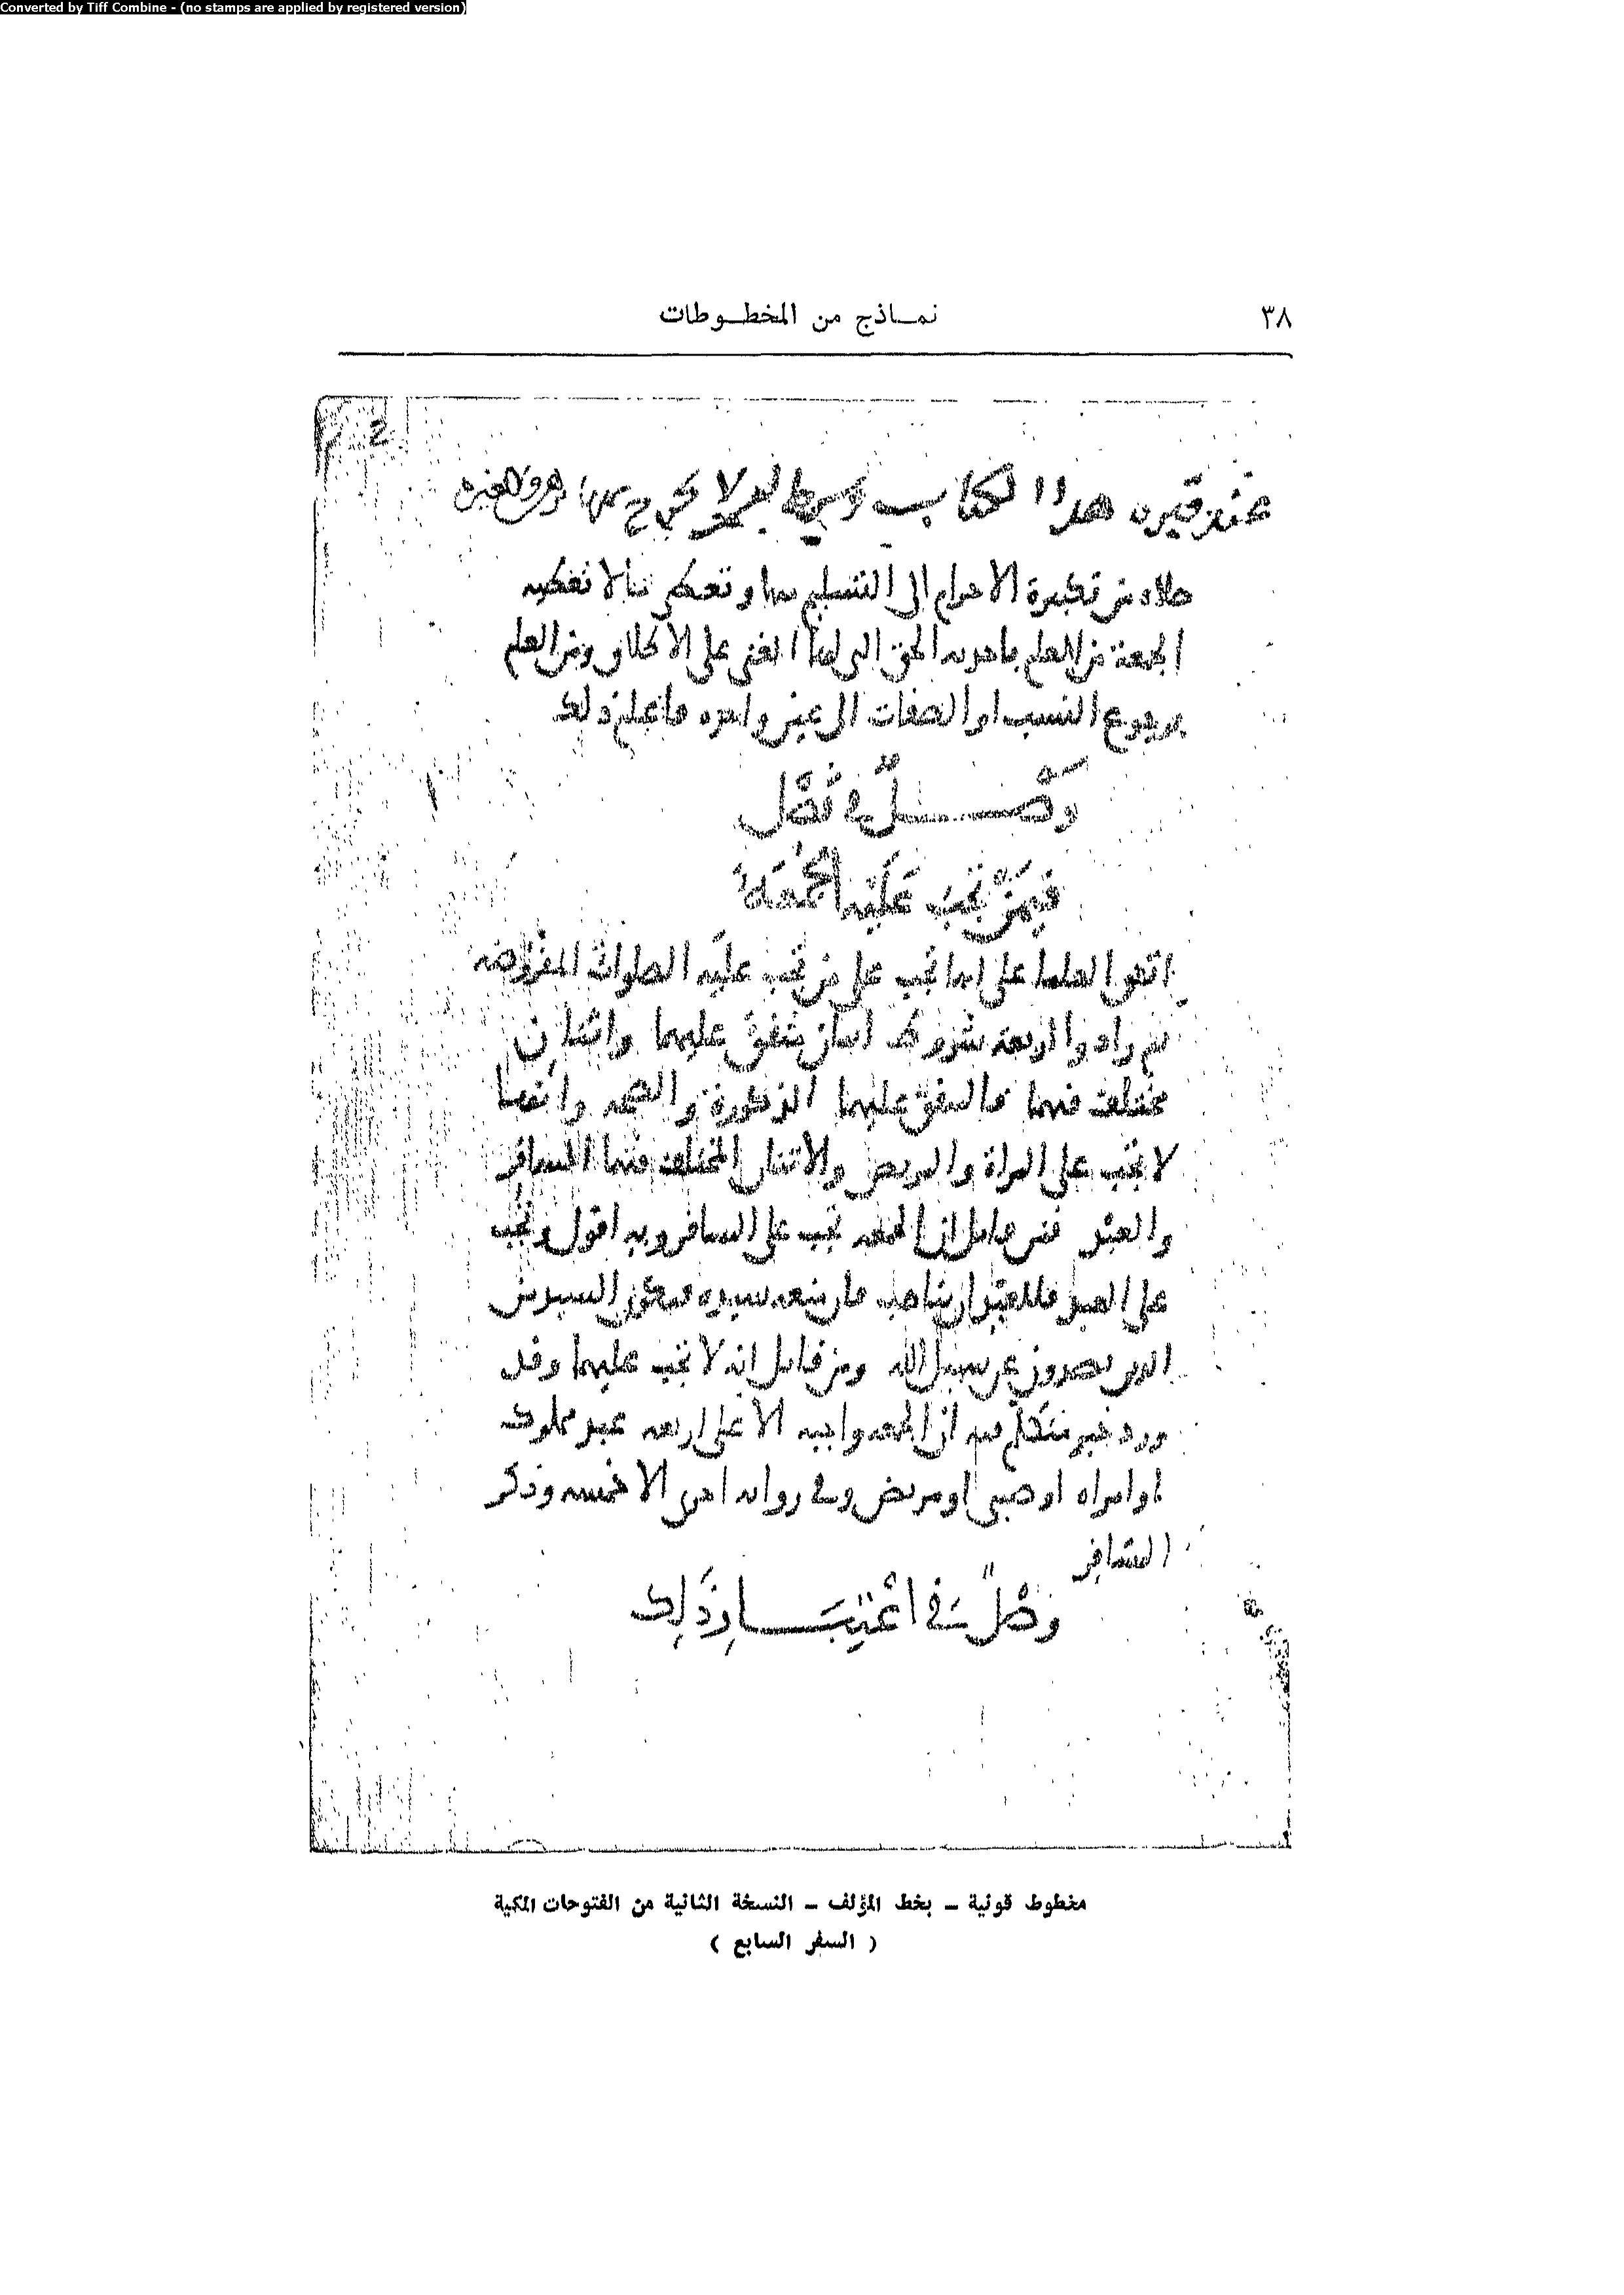 Converted by Tiff Combine - (no stamps are applied by registered version)
٣٨
نمـاذج من المخطـوطات
عند قبره هذا الكتاب لا يخرج منها
صلاه من تكبيرة الاحرام الى التسليم بما وتعطى مالا تعطيه
الجمعة من العلم بما هو به الحق الى الغنى على الاطلاق ومن العلم
برجوع النسب او الصفات الى عين واحده فاعلم ذلك
وَصْـــلٌ فى فَصْل
فيمَنْ تَجب عَلَيْه الجُمعَة
اتفق العلما على انها تجب على من تجب عليه الصلوات المفروضه
ثم زادوا اربعة شروط اثنان متفق عليهما واثنان
مختلف فيهما فالمتفق عليهما الذكورة والصحه وانها
لا تجب على المراة والمريض والاثنان المختلف فيهما المسافر
والعبد فمن قايل ان الجمعه تجب على المسافر وبه اقول وتجب
على العبد فللعبد ان يتاهب فان منعه سيده فيكون السيد من
الذين يصدون عن سبيل الله ومن قايل انه لا تجب عليهما وقد
ورد خبر متكلم فيه ان الجمعه واجبه الا على اربعه عبد مملوك
او امراه او صبى او مريض وفى روايه اخرى الا خمسه وذكر
المسَافر
وَصْلٌ فى اعْتِبَـــارِ ذَلِك
مخطوط قونية – بخط المؤلف – النسخة الثانية من الفتوحات المكية
( السفر السابع )